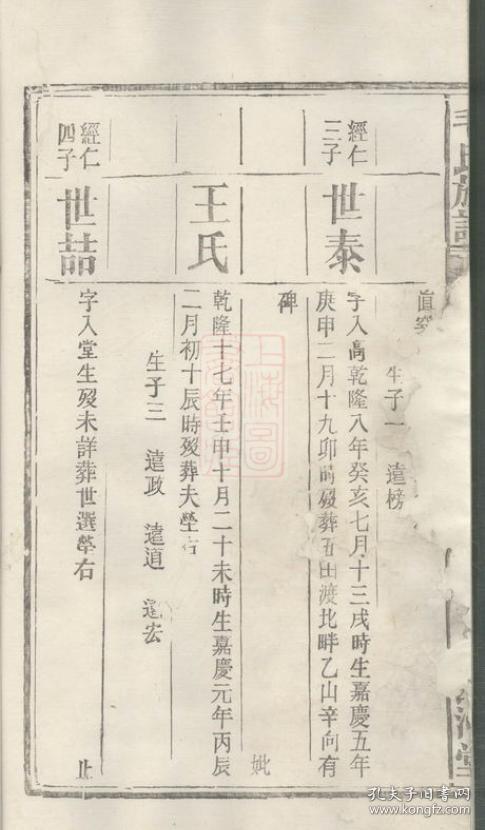 毛氏族譜
眞穸
生子一 遠榜
經仁三子
世泰
字入高乾隆八年癸亥七月十三戌時生嘉慶五年
庚申二月十九卯時歿葬五田渡北畔乙山辛向有
碑
妣
王氏
乾隆十七年壬申十月二十未時生嘉慶元年丙辰
二月初十辰時歿葬夫塋右
生子三 遠政 遠道 遠宏
經仁四子
世喆
字入堂生歿未詳葬世選塋右
止
上海圖
孔夫子旧书网
kongfz.com